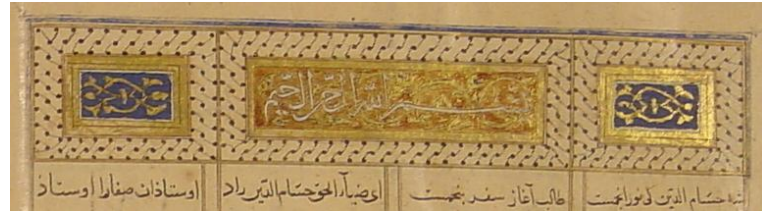 بسم الله الرحمن الرحیم
شه حسام الدین کی نور انجمست طالب آغاز سفر پنجمست ای ضیاء الحق حسام الدین راد اوستاذان صفارا اوستاد